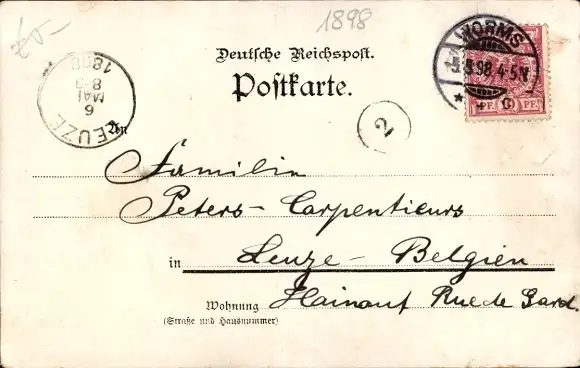 1898
Deutsche Reichspost.
Postkarte.
WORMS
5.5.98. 4-5N
PF. PF.
LEUZE
6
MAI
8-9
1898
2
An
Familie
Peters-Carpentieurs
in Leuze-Belgien
Wohnung Hainaut Rue de Gard.
(Straße und Hausnummer)